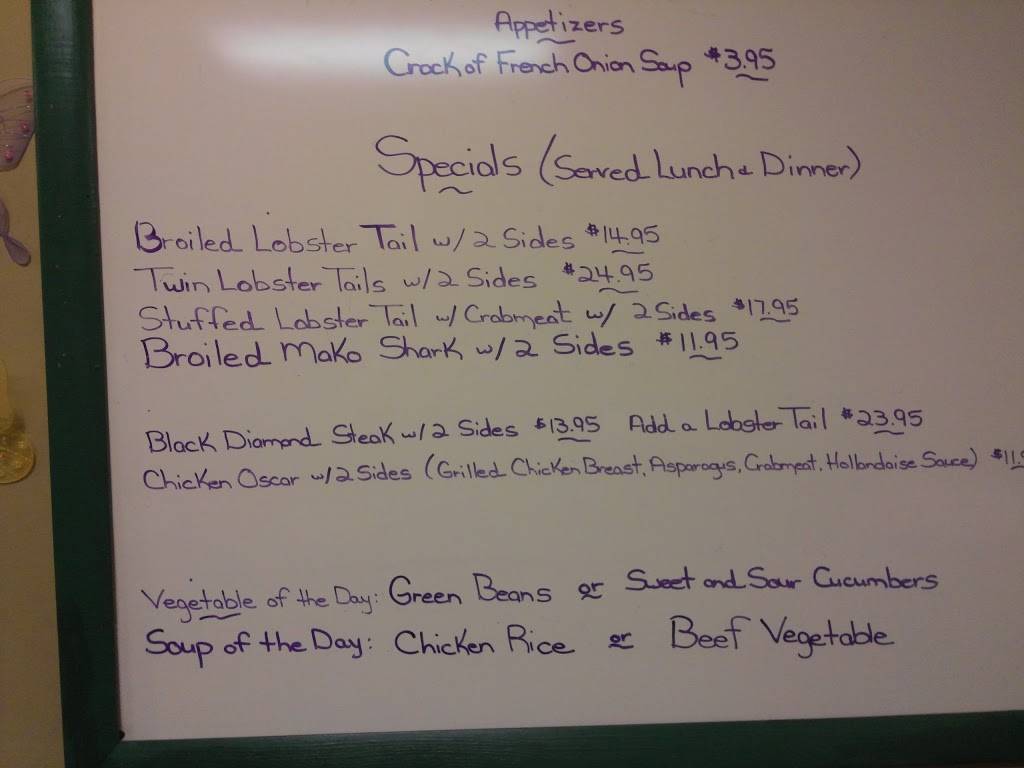 Appetizers
Crock of French Onion Soup $3.95
Specials (Served Lunch & Dinner)
Broiled Lobster Tail w/ 2 Sides $14.95
Twin Lobster Tails w/ 2 Sides $24.95
Stuffed Lobster Tail w/ Crabmeat w/ 2 Sides $17.95
Broiled Mako Shark w/ 2 Sides $11.95
Black Diamond Steak w/ 2 Sides $13.95 Add a Lobster Tail $23.95
Chicken Oscar w/ 2 Sides (Grilled Chicken Breast, Asparagus, Crabmeat, Hollandaise Sauce)
Vegetable of the Day: Green Beans or Sweet and Sour Cucumbers
Soup of the Day: Chicken Rice or Beef Vegetable